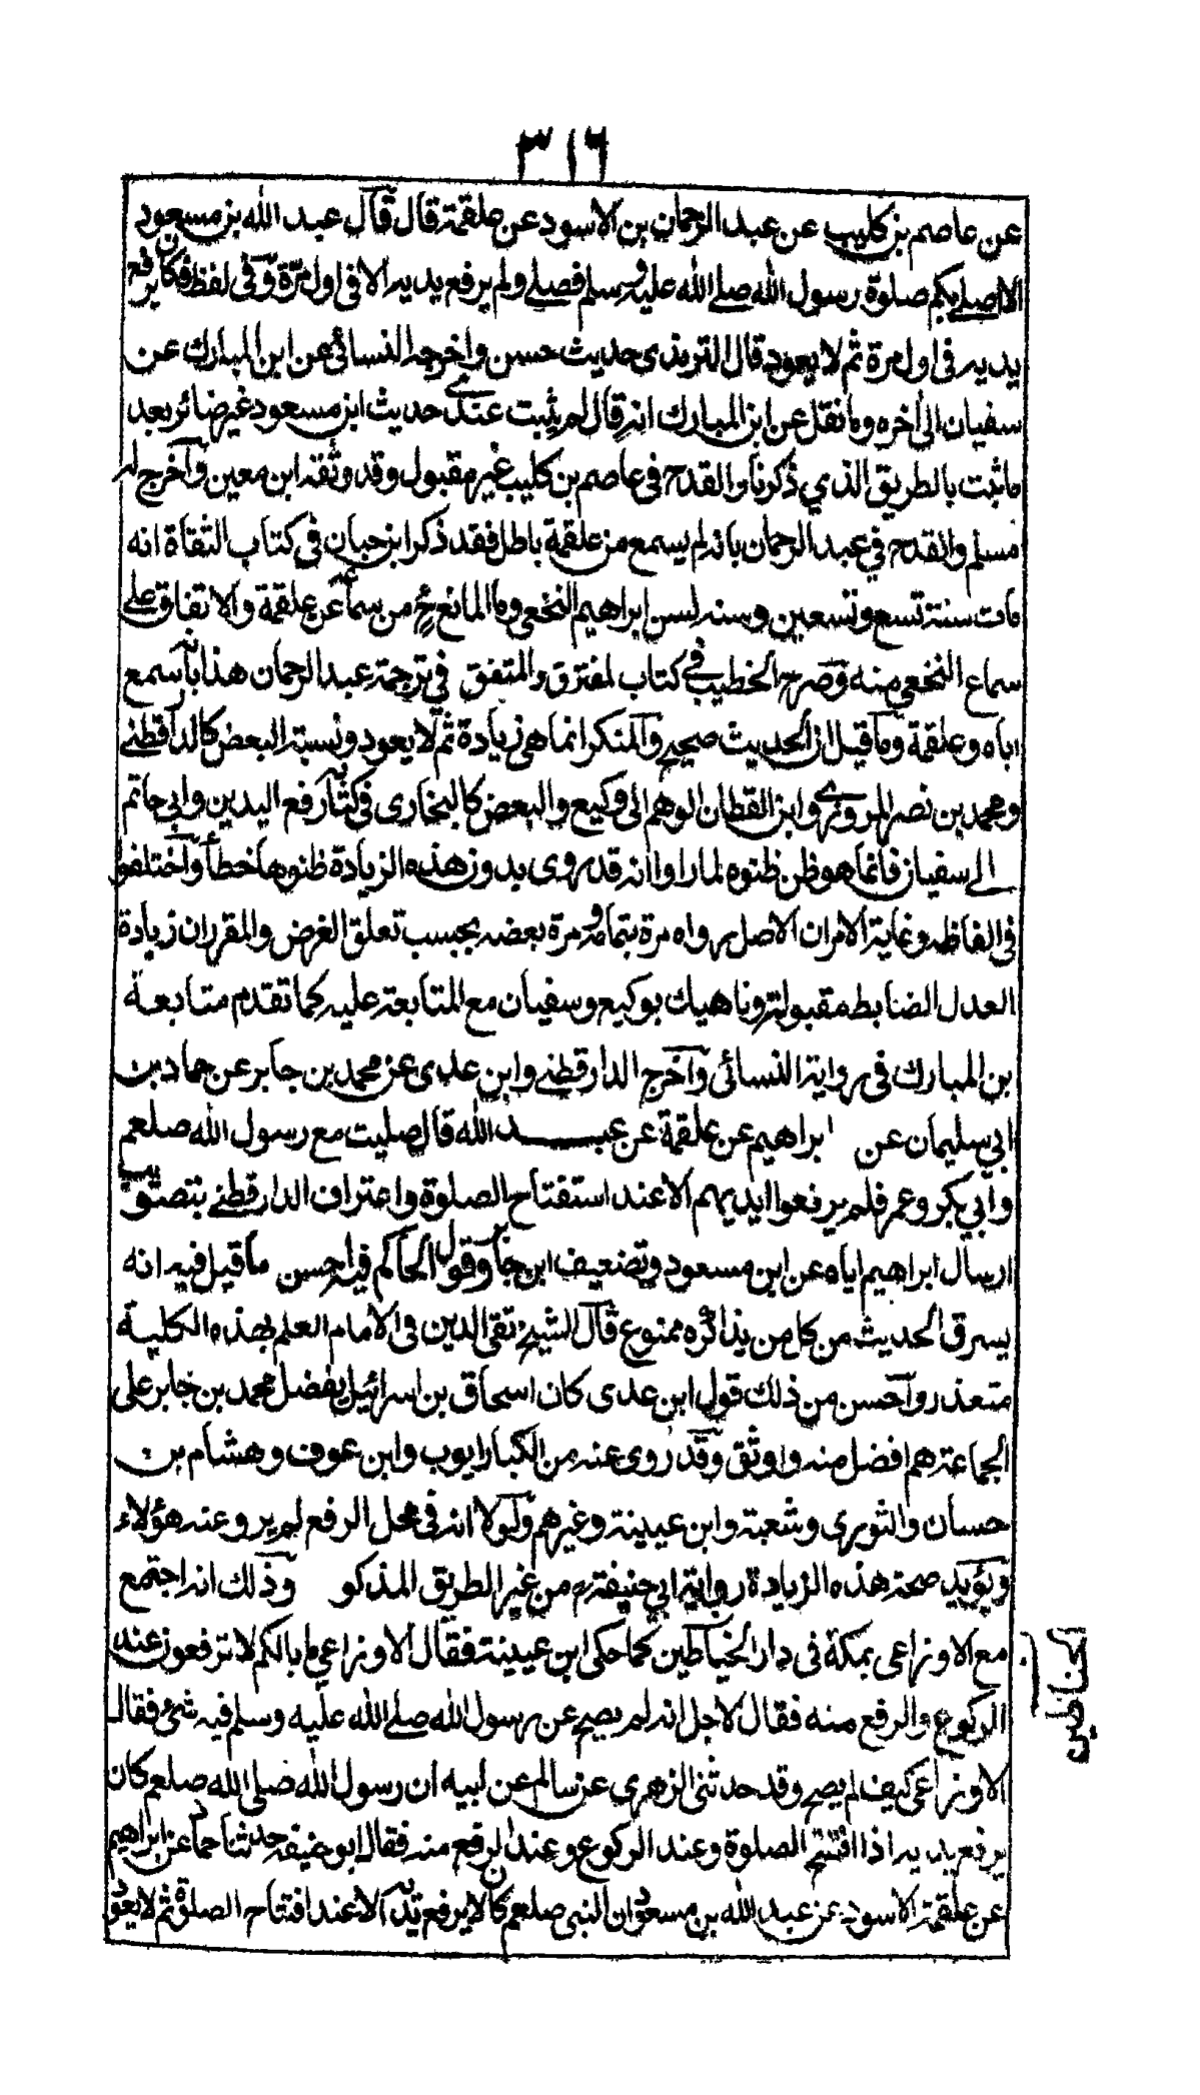 ٣١٦
عن عاصم بن كليب عن عبد الرحمان بن الاسود عن علقمة قال قال عبد الله بن مسعود
الا اصلي بكم صلوة رسول الله صلے الله عليه وسلم فصلے ولم يرفع يديه الا فى اول مرة وفى لفظ فكان يرفع
يديه فى اول مرة ثم لا يعود قال الترمذى حديث حسن واخرجه النسائى عن ابن المبارك عن
سفيان الى اخره وما نقل عن ابن المبارك انه قال لم يثبت عندى حديث ابن مسعود غير ضائر بعد
ما ثبت بالطريق الذي ذكرنا والقدح فى عاصم بن كليب غير مقبول وقد وثقه ابن معين واخرج له
مسلم والقدح في عبد الرحمان بانه لم يسمع من علقمة باطل فقد ذكر ابن حبان فى كتاب الثقاة انه
مات سنة تسع وتسعين وسنه لسن ابراهيم النخعى وما المانع ح من سماعه عن علقمة والاتفاق على
سماع النخعي منه وصرح الخطيب فے كتاب لمفترق والمتفق فى ترجمة عبد الرحمان هذا بانه سمع
اباه وعلقمة وما قيل ان الحديث صحيح والمنكر انما هى زيادة ثم لا يعود ونسبته البعض كالدارقطنے
ومحمد بن نصر المروزے وابن القطان الوهم الى وكيع والبعض كالبخارى فى كتابه رفع اليدين وابي حاتم
الے سفيان فانما هو ظن ظنوه لما راوا انه قد روى بدون هذه الزيادة ظنوها خطأ واختلفوا
فى الفاظه وغاية الامر ان الاصل رواه مرة بتمامه ومرة بعضه بحسب تعلق الغرض والمقرر ان زيادة
العدل الضابط مقبولة وناهيك بوكيع وسفيان مع المتابعة عليه كما تقدم متابعة
بن المبارك فى رواية النسائى وآخرج الدارقطنے وابن عدى عن محمد بن جابر عن حماد بن
ابي سليمان عن ابراهيم عن علقمة عن عبد الله قال صليت مع رسول الله صلعم
وابي بكر وعمر فلم يرفعوا ايديهم الا عند استفتاح الصلوة واعتراف الدارقطنے بتصويب
ارسال ابراهيم اياه عن ابن مسعود وتضعيف ابن جابر وقول الحاكم فيه احسن ما قيل فيه انه
يسرق الحديث من كل من يذاكره ممنوع قال الشيخ تقى الدين فى الامام العلم بهذه الكلية
متعذر واحسن من ذلك قول ابن عدى كان اسحاق بن اسرائيل يفضل محمد بن جابر على
الجماعة هم افضل منه واوثق وقد روى عنه من الكبار ايوب وابن عوف وهشام بن
حسان والثورى وشعبة وابن عيينة وغيرهم ولولا انه فى محل الرفع لم يرو عنه هؤلاء
ويؤيد صحة هذه الزيادة رواية ابي حنيفة من غير الطريق المذكو وذلك انه اجتمع
مع الاوزاعى بمكة فى دار الخياطين كما حكى ابن عيينة فقال الاوزاعي ما بالكم لا ترفعون عند
الركوع والرفع منه فقال لاجل انه لم يصح عن رسول الله صلے الله عليه وسلم فيه شئ فقال
الاوزاعى كيف لم يصح وقد حدثنى الزهرى عن سالم عن ابيه ان رسول الله صلى الله صلعم كان
يرفع يديه اذا افتتح الصلوة وعند الركوع وعند الرفع منه فقال ابو حنيفة حدثنا حماد عن ابراهيم
عن علقمة الاسود عن عبد الله بن مسعود ان النبى صلعم كان لا يرفع يديه الا عند افتتاح الصلوة ثم لا يعود
الحناطين